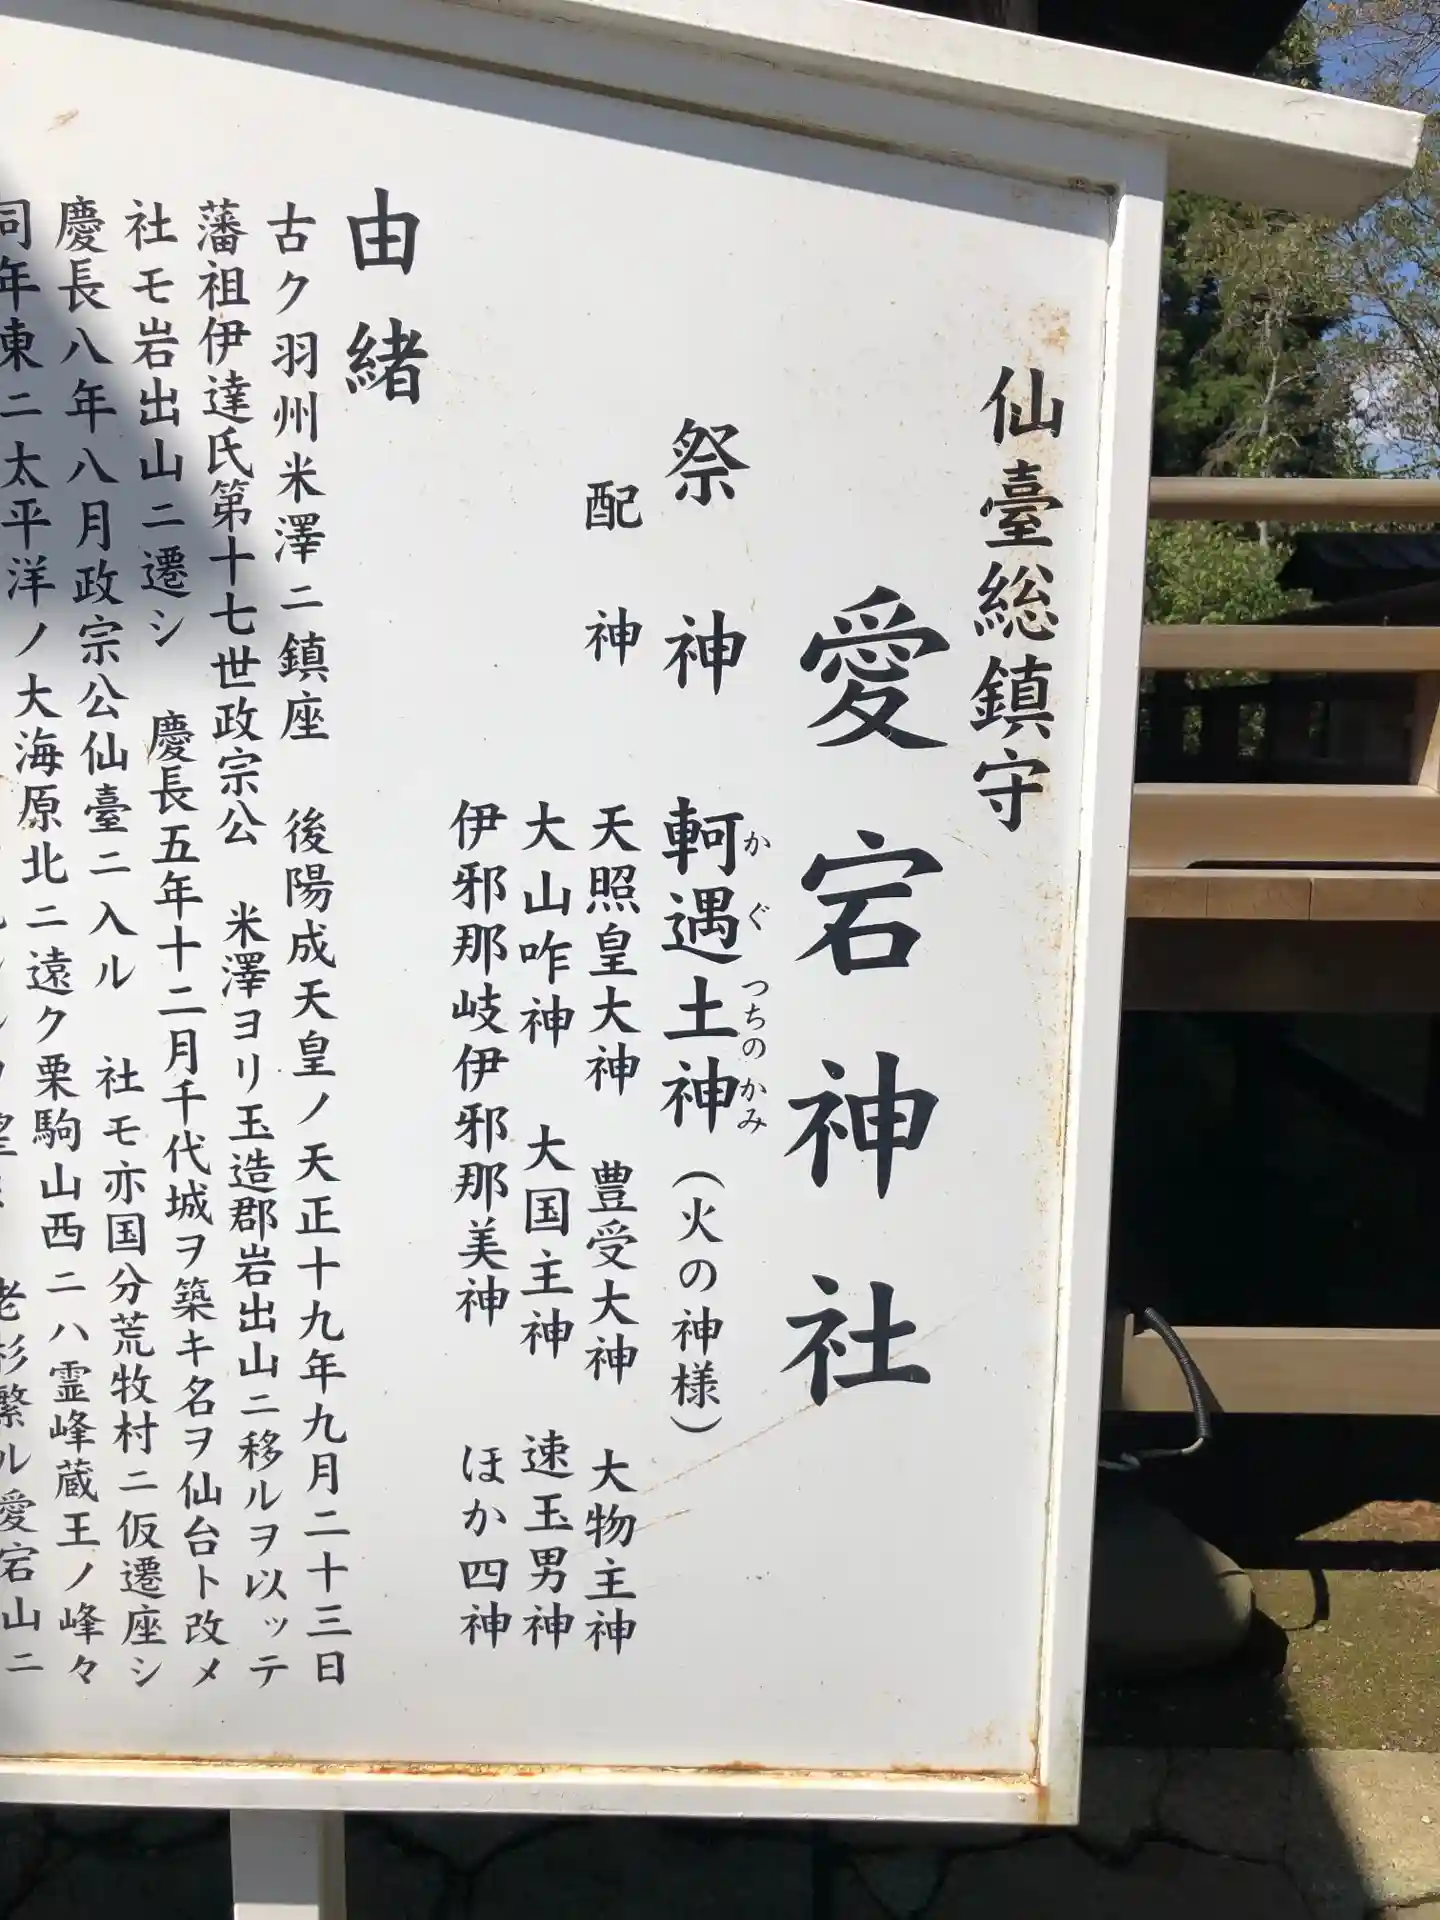 仙臺総鎮守
愛宕神社
祭神 軻遇土神(火の神様)
かぐつちのかみ
配神 天照皇大神 豊受大神 大物主神
大山咋神 大国主神 速玉男神
伊邪那岐伊邪那美神 ほか四神
由緒
古ク羽州米澤ニ鎮座 後陽成天皇ノ天正十九年九月二十三日
藩祖伊達氏第十七世政宗公 米澤ヨリ玉造郡岩出山ニ移ルヲ以ッテ
社モ岩出山ニ遷シ 慶長五年十二月千代城ヲ築キ名ヲ仙台ト改メ
慶長八年八月政宗公仙臺ニ入ル 社モ亦国分荒牧村ニ仮遷座シ
同年東ニ太平洋ノ大海原北ニ遠ク栗駒山西ニハ霊峰蔵王ノ峰々
老杉繁ル愛宕山ニ